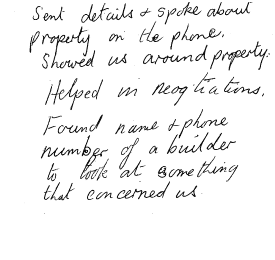 Sent details & spoke about
property on the phone.
Showed us around property.
Helped in neogtiations.
Found name & phone
number of a builder
to look at something
that concerned us